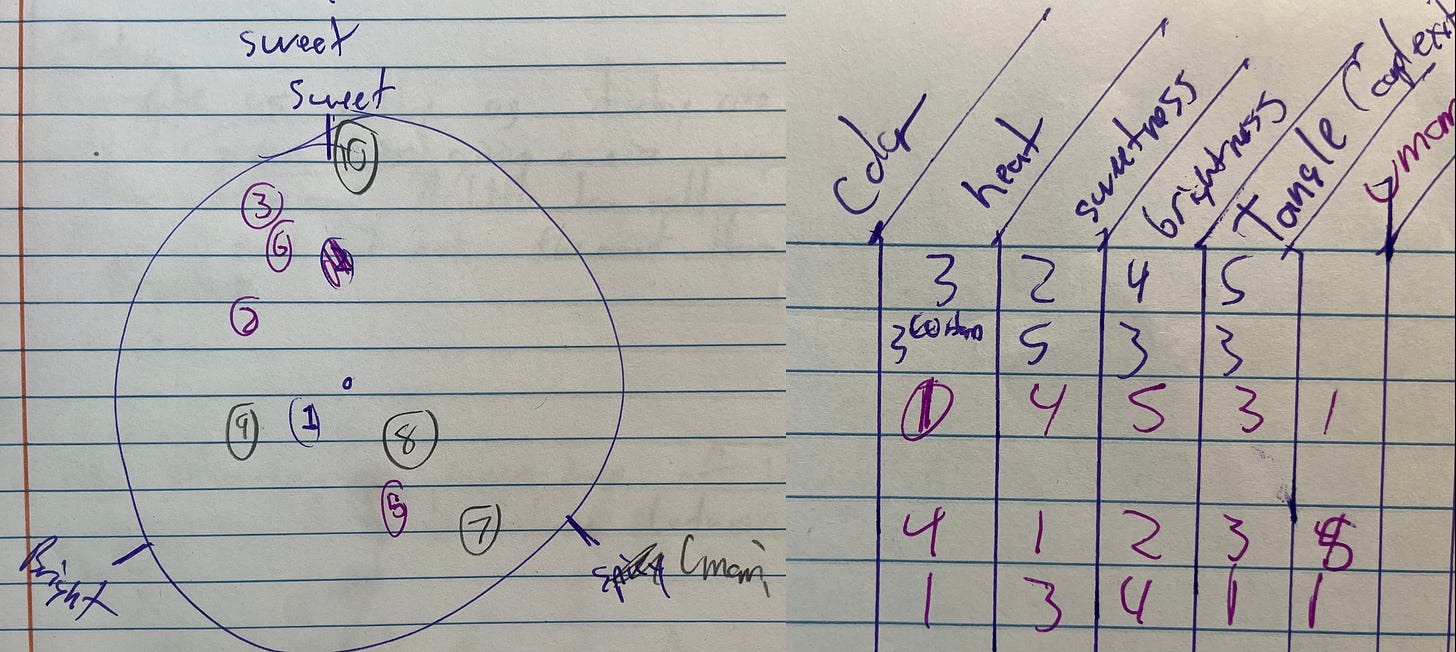 sweet
sweet
10
3
6
2
9
1
8
5
7
Bright
Umami
Color
heat
sweetness
brightness
Tangle
Umami
3 2 4 5
3 5 3 3
1 4 5 3 1
4 1 2 3
1 3 4 1 1